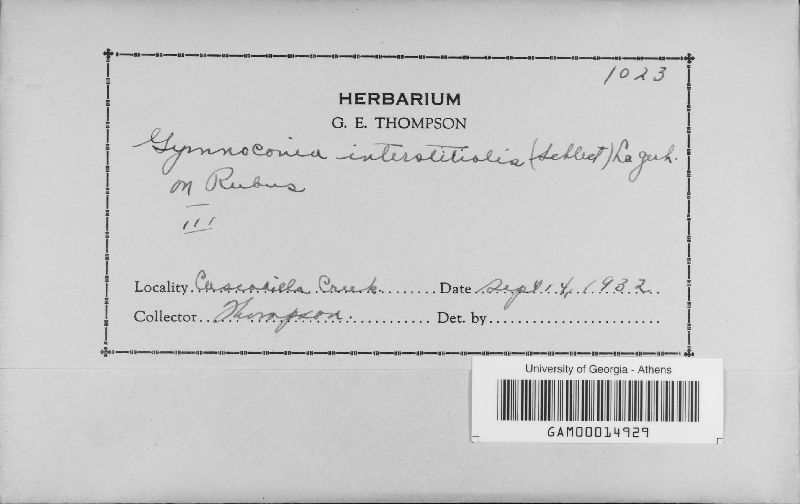 1023
HERBARIUM
G. E. THOMPSON
Gymnoconia interstitialis (Schlect) Lagerh.
on Rubus
III
Locality. Cascadilla Creek Date Sept 14, 1932
Collector Thompson. Det. by
University of Georgia - Athens
GAM00014929